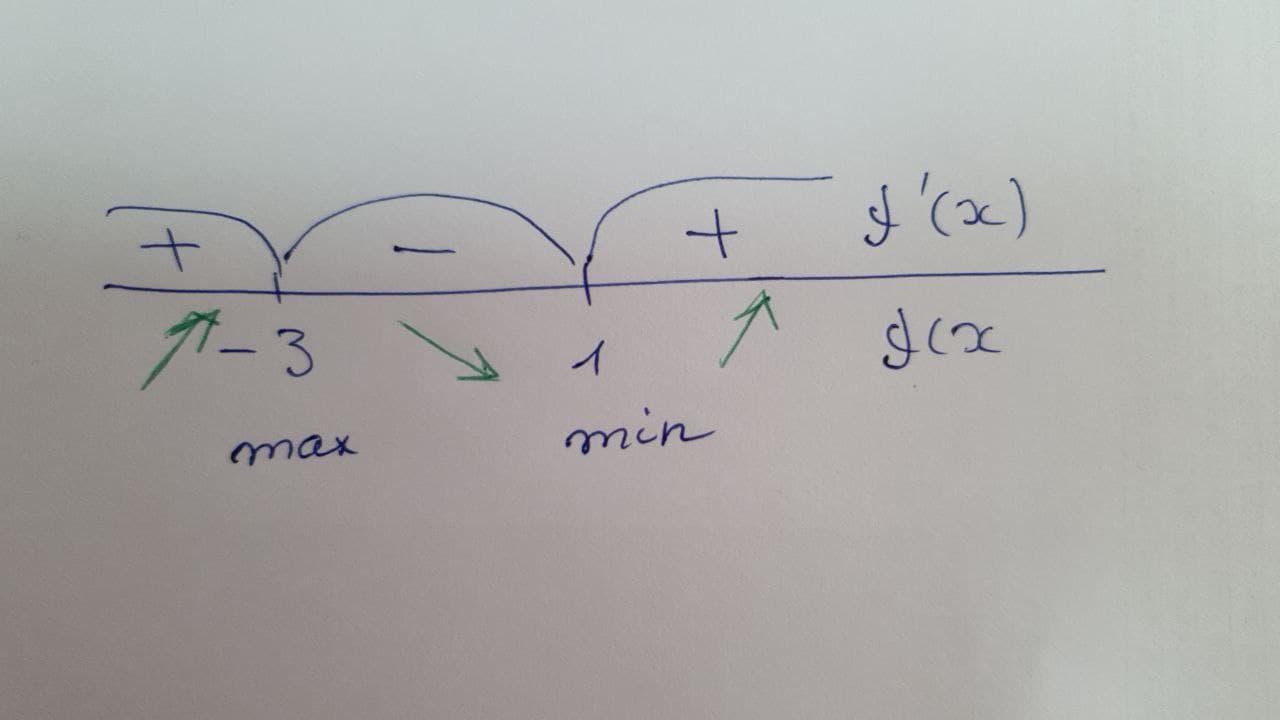 + - + f'(x)
-3 1 f(x
max min